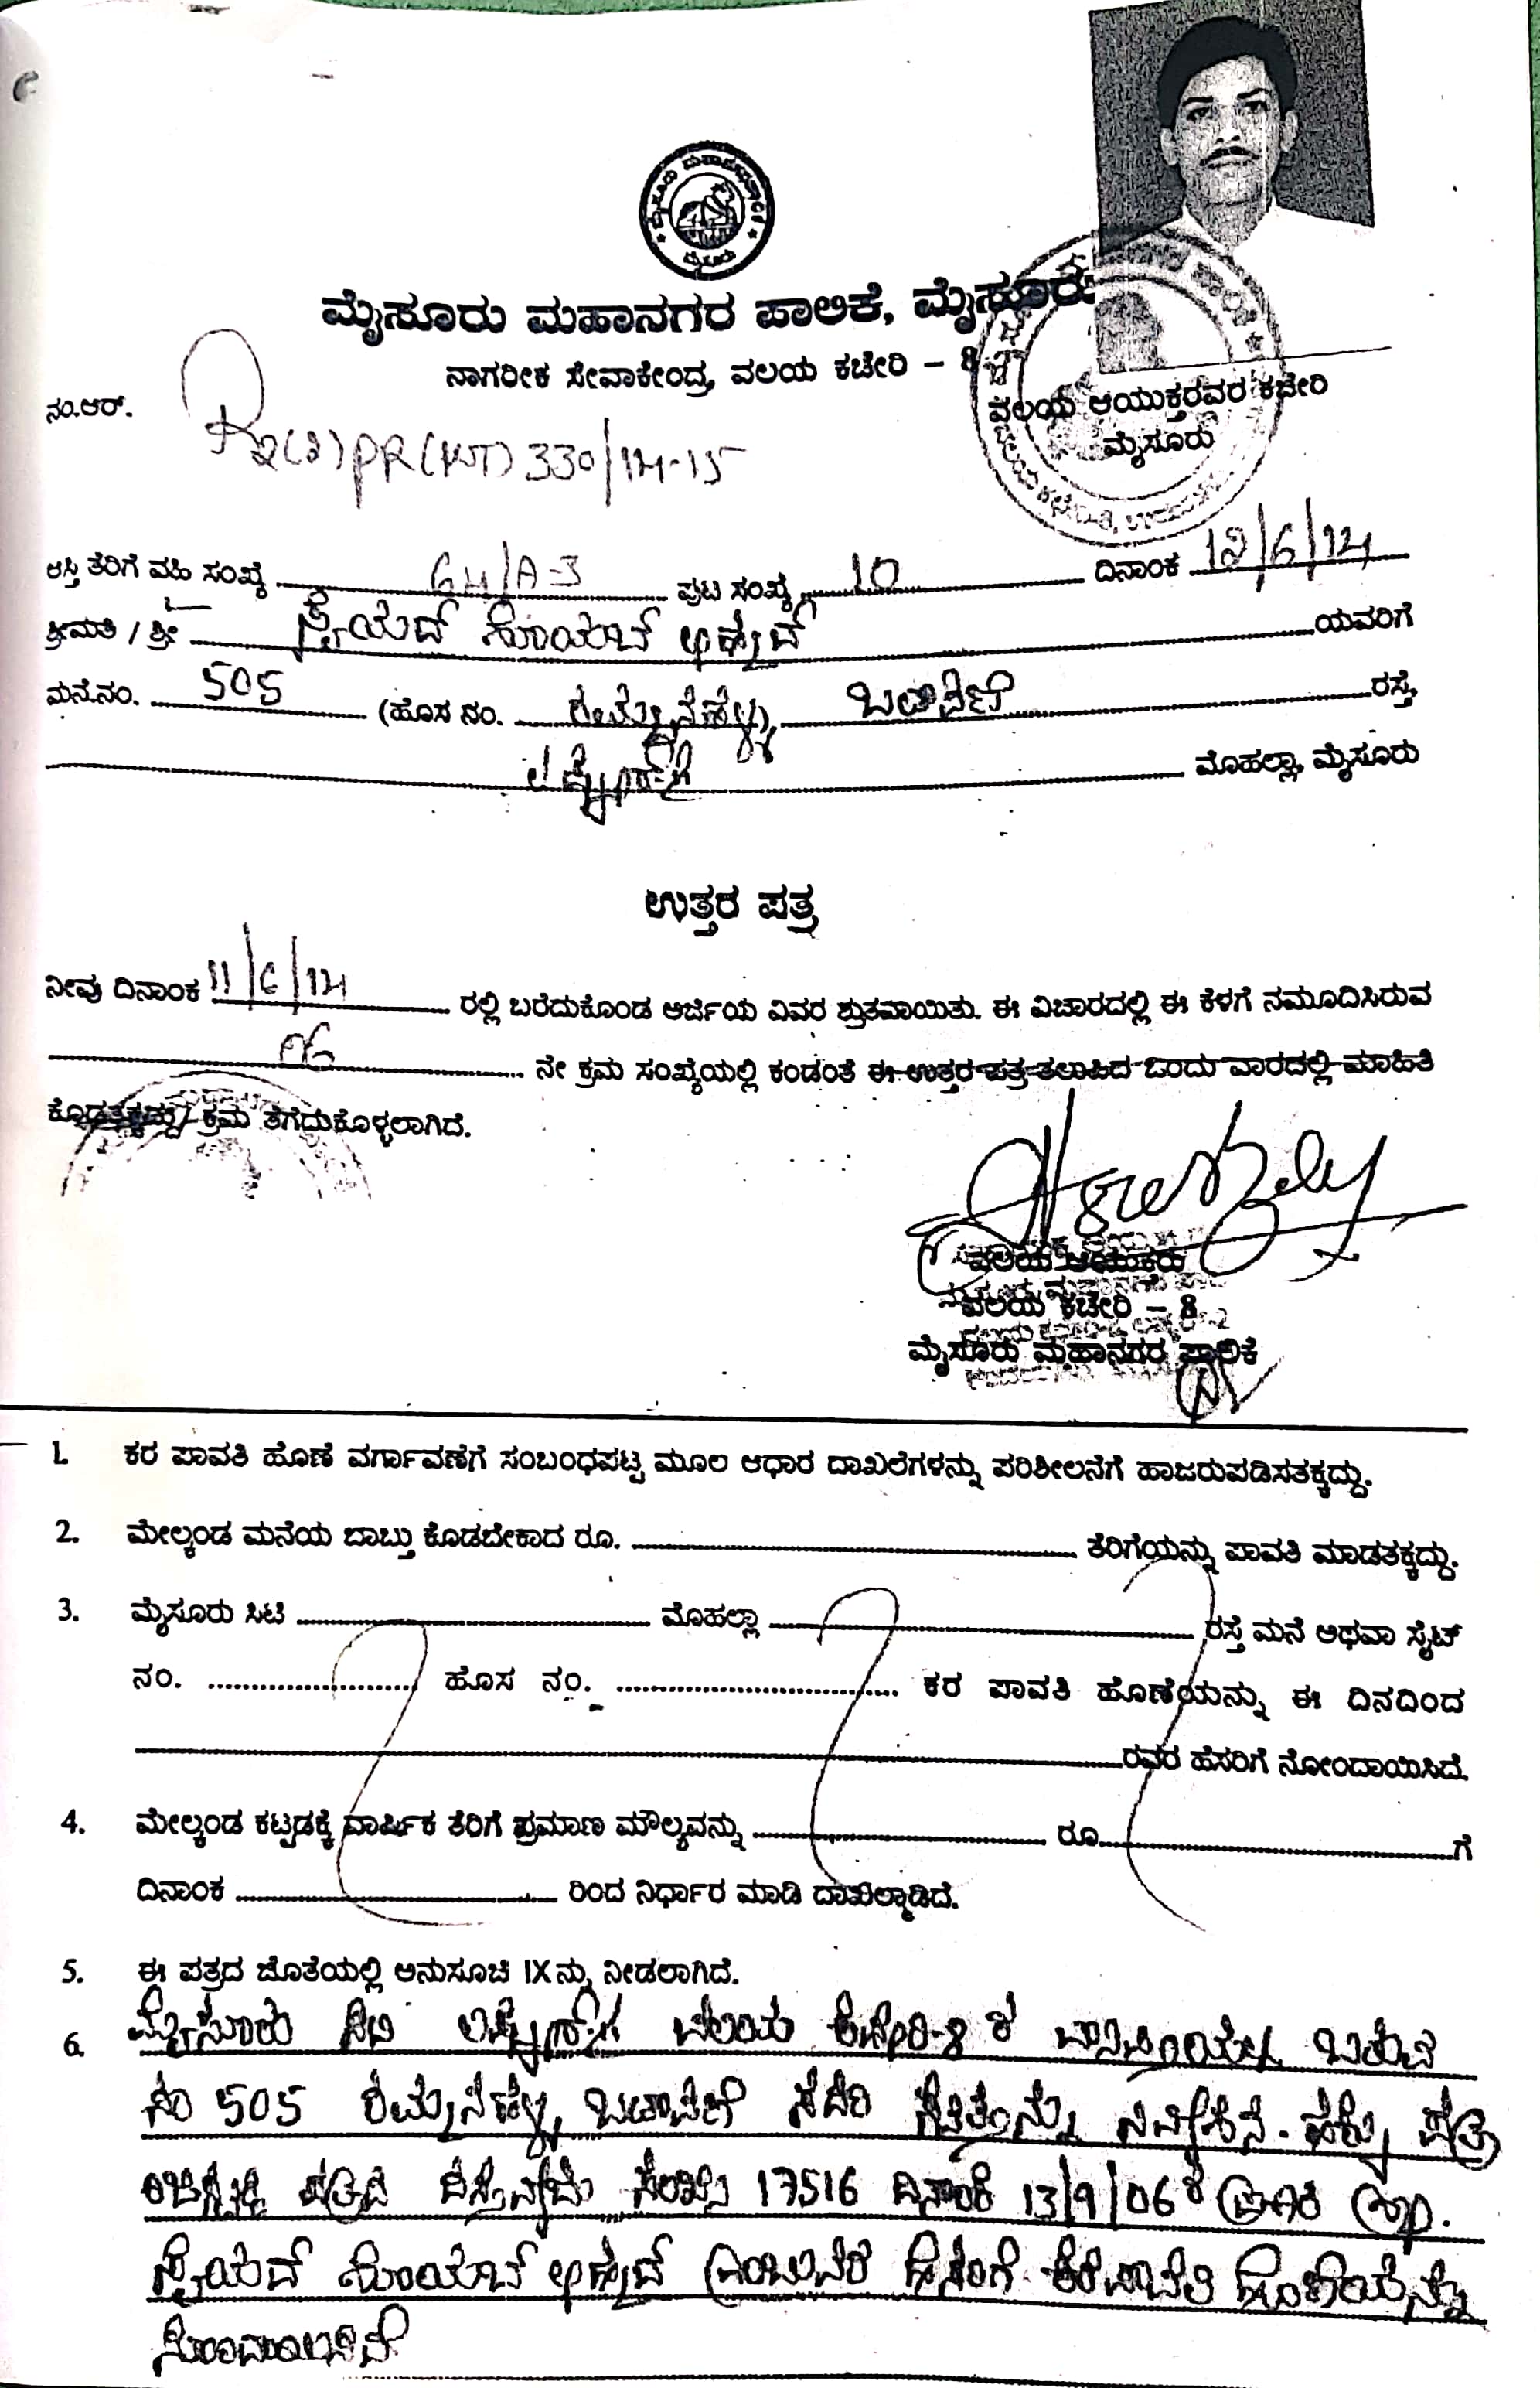 ಮೈಸೂರು ಮಹಾನಗರ ಪಾಲಿಕೆ, ಮೈಸೂರು
ನಾಗರೀಕ ಸೇವಾಕೇಂದ್ರ, ವಲಯ ಕಚೇರಿ – 8
ವಲಯ ಆಯುಕ್ತರವರ ಕಚೇರಿ
ಮೈಸೂರು
ನಂ.ಆರ್.
330/14-15
ಆಸ್ತಿ ತೆರಿಗೆ ವಹಿ ಸಂಖ್ಯೆ 64/A-3 ಪುಟ ಸಂಖ್ಯೆ 10 ದಿನಾಂಕ 12/6/14
ಶ್ರೀಮತಿ / ಶ್ರೀ ಸೈಯದ್ ಅಹ್ಮದ್ ಯವರಿಗೆ
ಮನೆ.ನಂ. 505 (ಹೊಸ ನಂ. ಕಮ್ಮನಹಳ್ಳಿ ಬಡಾವಣೆ ರಸ್ತೆ,
ಮೊಹಲ್ಲಾ, ಮೈಸೂರು
ಉತ್ತರ ಪತ್ರ
ನೀವು ದಿನಾಂಕ 11/6/14 ರಲ್ಲಿ ಬರೆದುಕೊಂಡ ಅರ್ಜಿಯ ವಿವರ ಶ್ರುತವಾಯಿತು. ಈ ವಿಚಾರದಲ್ಲಿ ಈ ಕೆಳಗೆ ನಮೂದಿಸಿರುವ
06 ನೇ ಕ್ರಮ ಸಂಖ್ಯೆಯಲ್ಲಿ ಕಂಡಂತೆ ಈ ಉತ್ತರ ಪತ್ರ ತಲುಪಿದ ಒಂದು ವಾರದಲ್ಲಿ ಮಾಹಿತಿ
ಕೊಡತಕ್ಕದ್ದು/ ಕ್ರಮ ತೆಗೆದುಕೊಳ್ಳಲಾಗಿದೆ.
ವಲಯ ಆಯುಕ್ತರು
ವಲಯ ಕಚೇರಿ – 8
ಮೈಸೂರು ಮಹಾನಗರ ಪಾಲಿಕೆ
1. ಕರ ಪಾವತಿ ಹೊಣೆ ವರ್ಗಾವಣೆಗೆ ಸಂಬಂಧಪಟ್ಟ ಮೂಲ ಆಧಾರ ದಾಖಲೆಗಳನ್ನು ಪರಿಶೀಲನೆಗೆ ಹಾಜರುಪಡಿಸತಕ್ಕದ್ದು.
2. ಮೇಲ್ಕಂಡ ಮನೆಯ ಬಾಬ್ತು ಕೊಡಬೇಕಾದ ರೂ. ತೆರಿಗೆಯನ್ನು ಪಾವತಿ ಮಾಡತಕ್ಕದ್ದು.
3. ಮೈಸೂರು ಸಿಟಿ ಮೊಹಲ್ಲಾ ರಸ್ತೆ ಮನೆ ಅಥವಾ ಸೈಟ್
ನಂ. ಹೊಸ ನಂ. ಕರ ಪಾವತಿ ಹೊಣೆಯನ್ನು ಈ ದಿನದಿಂದ
ರವರ ಹೆಸರಿಗೆ ನೋಂದಾಯಿಸಿದೆ.
4. ಮೇಲ್ಕಂಡ ಕಟ್ಟಡಕ್ಕೆ ವಾರ್ಷಿಕ ತೆರಿಗೆ ಪ್ರಮಾಣ ಮೌಲ್ಯವನ್ನು ರೂ. ಗೆ
ದಿನಾಂಕ ರಿಂದ ನಿರ್ಧಾರ ಮಾಡಿ ದಾಖಲ್ಮಾಡಿದೆ.
5. ಈ ಪತ್ರದ ಜೊತೆಯಲ್ಲಿ ಅನುಸೂಚಿ IX ನ್ನು ನೀಡಲಾಗಿದೆ.
6. ಮೈಸೂರು ಸಿಟಿ ವಲಯ ಕಚೇರಿ-8 ರ
ನಂ 505 ಬಡಾವಣೆ ಸದರಿ ಸ್ವತ್ತನ್ನು ನಿವೇಶನ ಹಕ್ಕು ಪತ್ರ
ಸಂಖ್ಯೆ 17516 ದಿನಾಂಕ 13/9/06 ರ
ಸೈಯದ್ ಅಹ್ಮದ್ ಎಂಬುವರ ಹೆಸರಿಗೆ ಕರಪಾವತಿ ಹೊಣೆಯನ್ನು
ನೋಂದಾಯಿಸಿದೆ